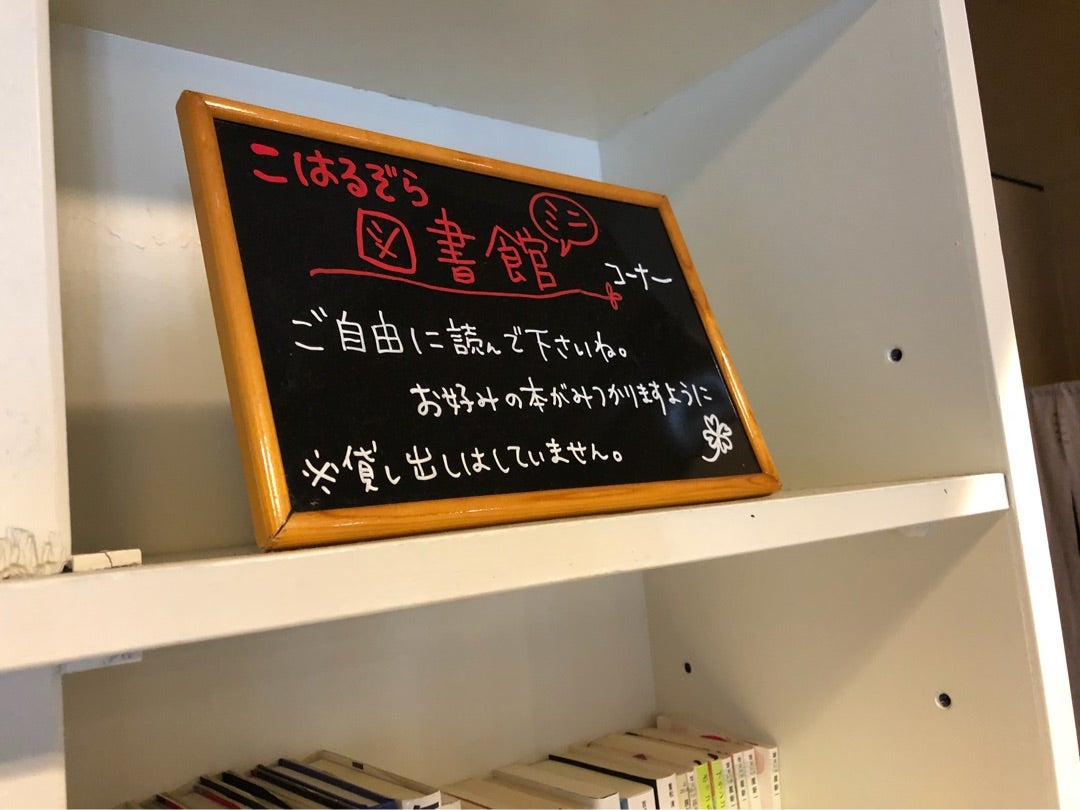 こはるぞら
図書館 ミニ
コーナー
ご自由に読んで下さいね。
お好みの本がみつかりますように
※貸し出しはしていません。